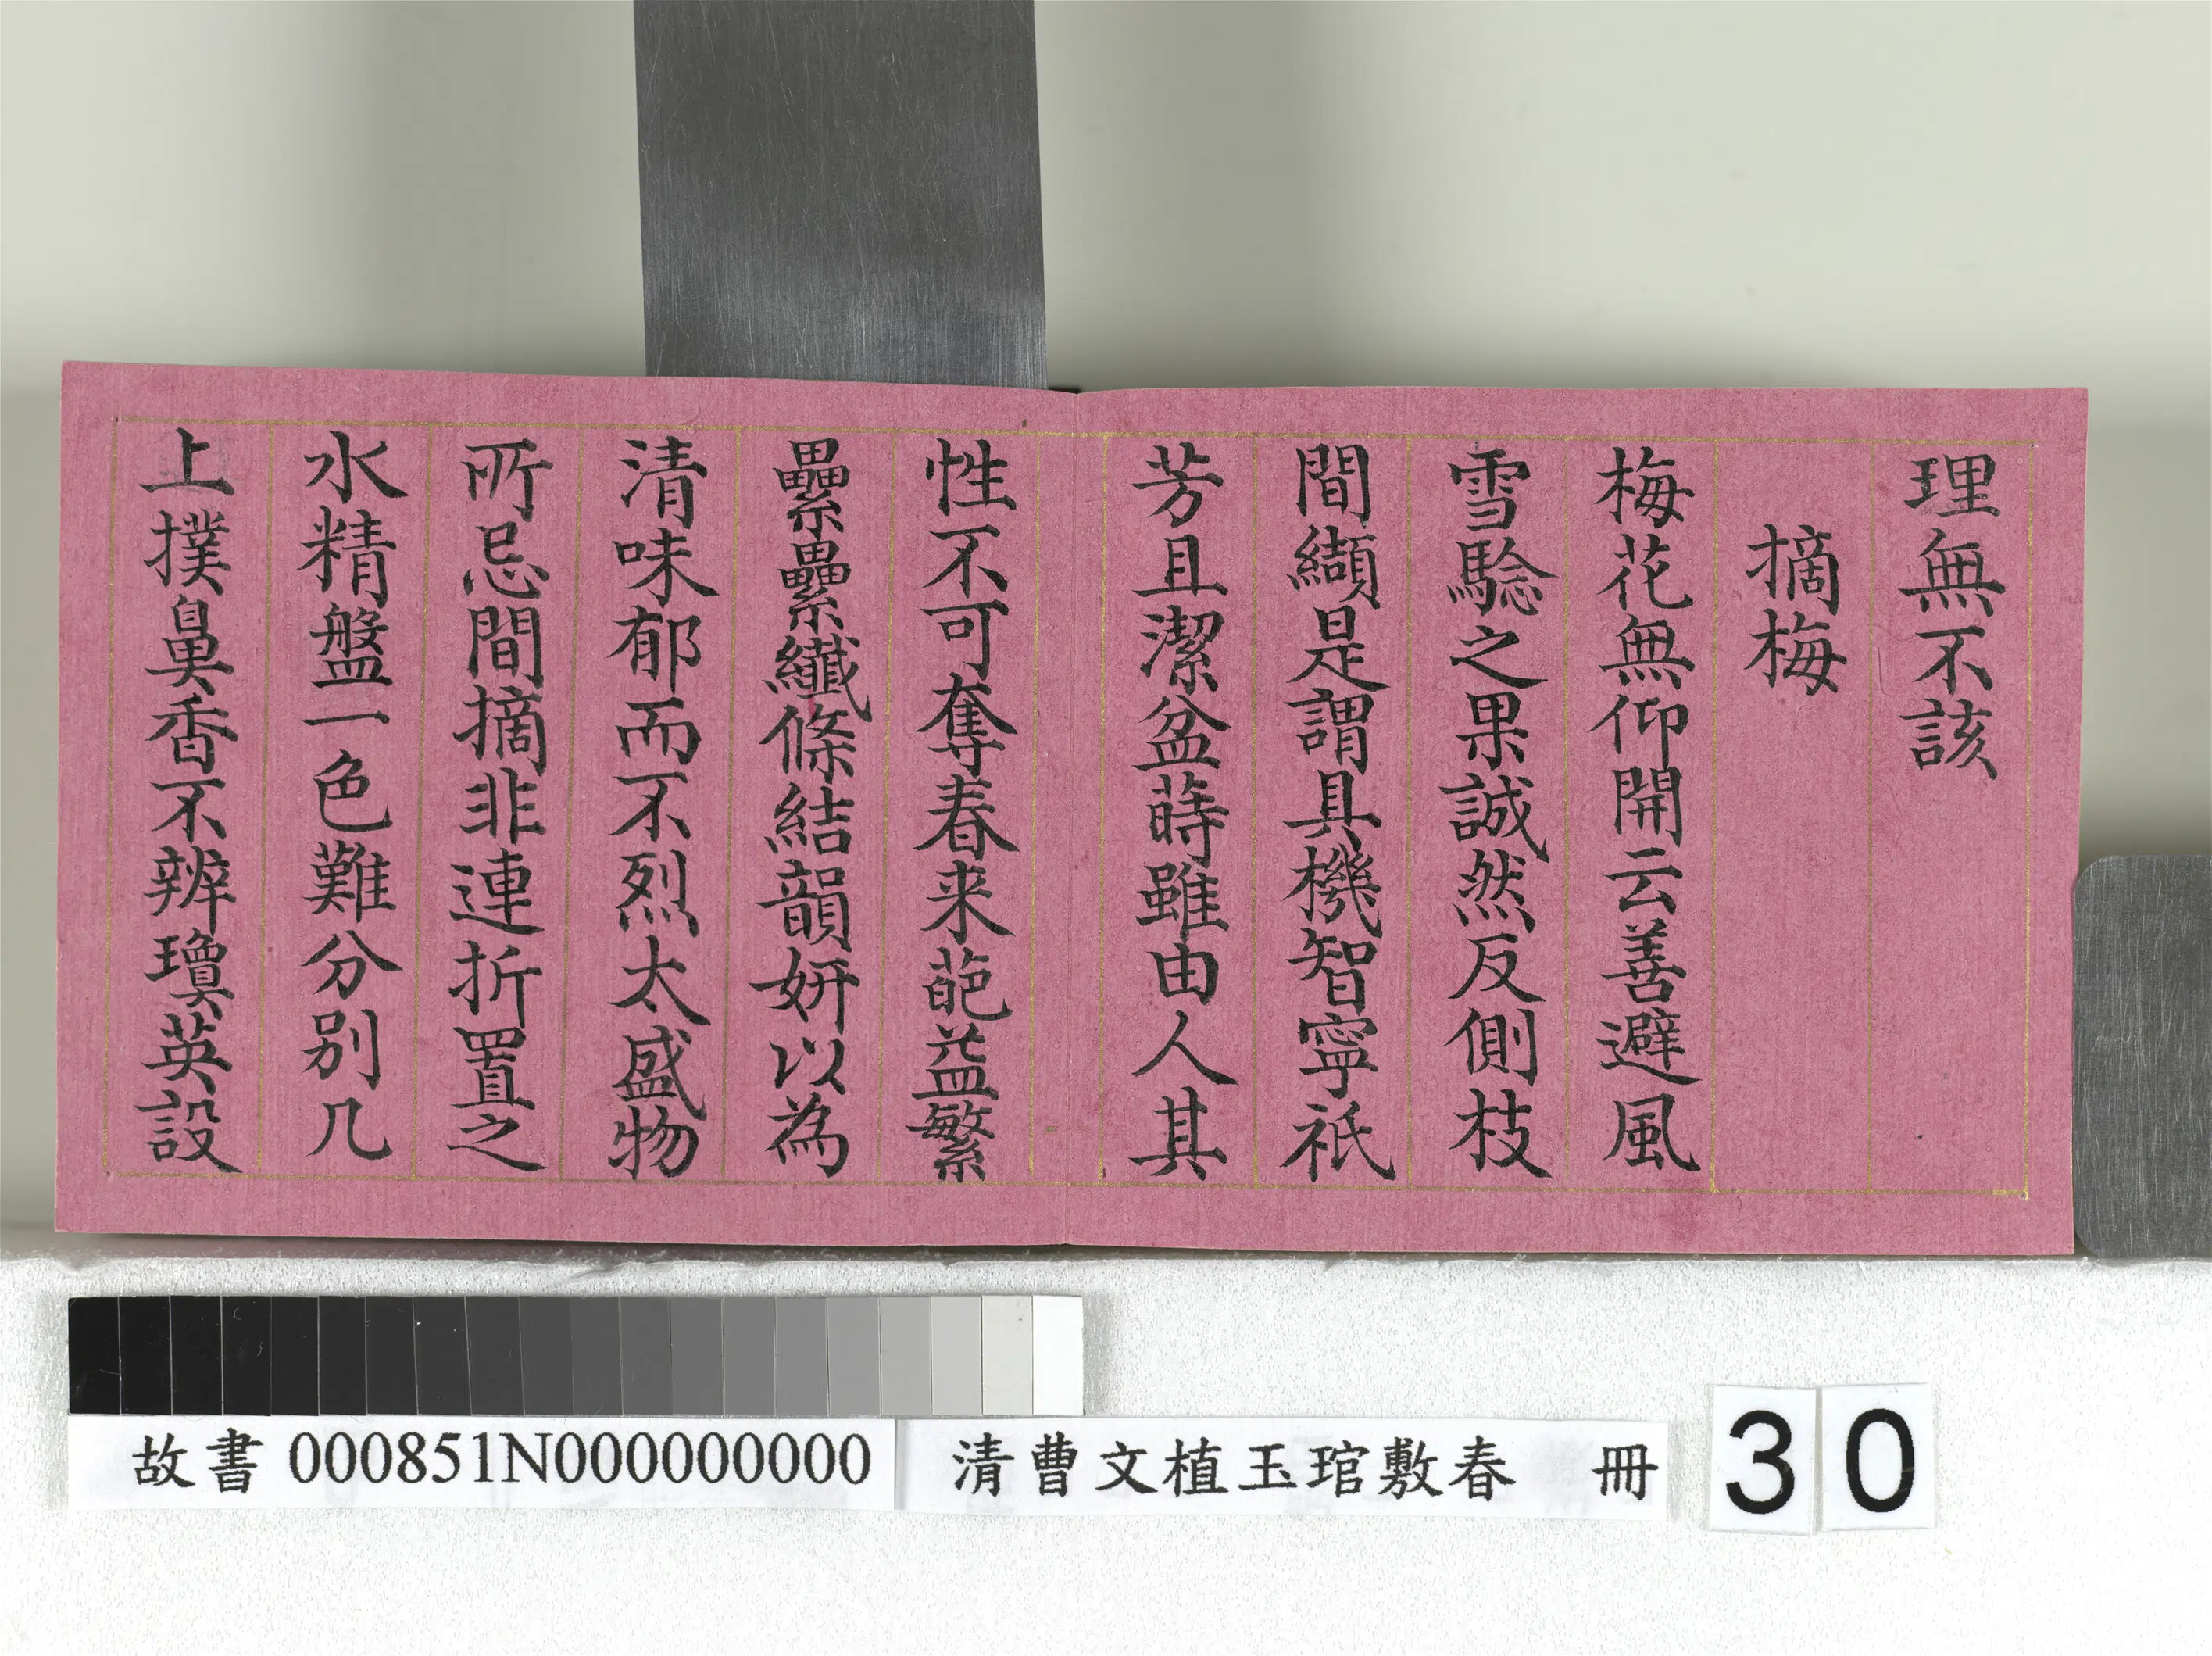 理無不該
摘梅
梅花無仰開云善避風
雪騐之果誠然反側枝
間纈是謂具機智寧祇
芳且潔盆蒔雖由人其
性不可奪春来葩益繁
纍纍纖條結韻妍以為
清味郁而不烈太盛物
所忌間摘非連折置之
水精盤一色難分别几
上撲鼻香不辨瓊英設
故書 000851N000000000
清曹文植玉琯敷春 冊
30